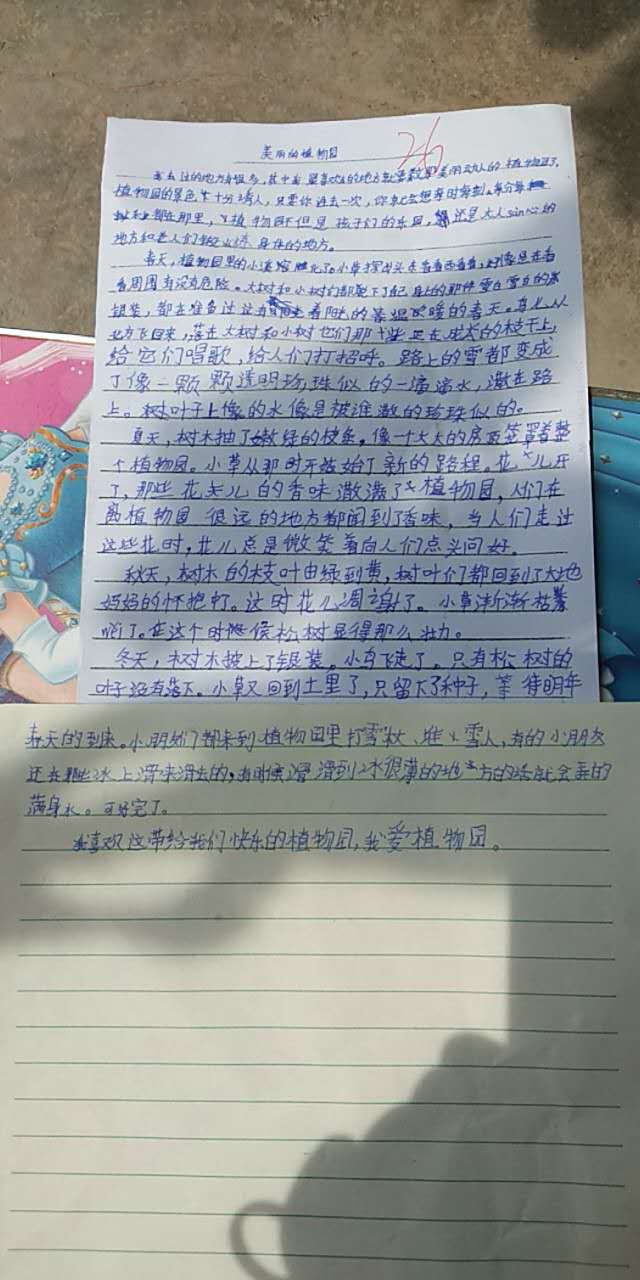 美丽的植物园
26
我去过的地方有很多,其中我最喜欢的地方就要数美丽动人的植物园了,
植物园的景色十分诱人,只要你进去一次,你就会想每时每刻、每分每
都在那里,植物园不但是孩子们的乐园,还是大人sin心的
地方和老人们锻炼身体的地方。
春天,植物园里的小溪溶化了。小草探出头左看看西看看,好像是在看
看周围有没有危险。大树和小树们都脱下了自己身上的那件雪白雪白的
银装,都在准备过这有着阳光的温暖的春天。鸟儿从
北方飞回来,落在大树和小树它们那些正在成长的枝干上,
给它们唱歌,给人们打招呼。路上的雪都变成
了像一颗颗透明珍珠似的一滴滴水,散在路
上。树叶子上像的水像是被谁散的珍珠似的。
夏天,树木抽了嫩绿的枝条,像一个大大的房顶笼罩着整
个植物园。小草从那时开始了新的路程。花儿开
了,那些花儿的香味散满了植物园,人们在
离植物园很远的地方都闻到了香味,当人们走过
这些花时,花儿总是微笑着向人们点头问好。
秋天,树木的枝叶由绿到黄,树叶们都回到了大地
妈妈的怀抱了。这时花儿凋谢了。小草渐渐枯萎
了。在这个时候松树显得那么壮。
冬天,树木披上了银装。小鸟飞走了。只有松树的
叶子没有落下。小草又回到土里了,只留下了种子,等待明年
春天的到来。小朋友们都来到植物园里打雪仗、堆雪人,有的小朋友
还去那些冰上滑来滑去的,有时候滑到冰很薄的地方的话就会弄的
满身水。可好完了。
我喜欢这带给我们快乐的植物园,我爱植物园。